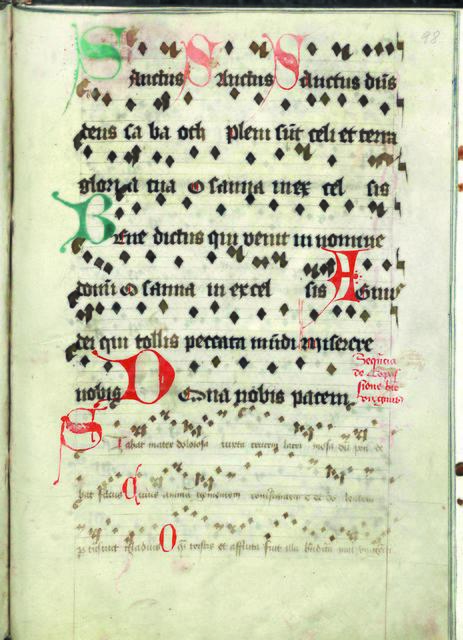 98
Sanctus Sanctus Sanctus dns
deus sa ba oth pleni sūt celi et terra
gloria tua osanna in ex cel sis
Bene dictus qui venit in nomine
domi osanna in excel sis Agnus
dei qui tollis peccata mūdi miserere
nobis Dona nobis pacem
Sequēcia
de
Stabat mater dolorosa iuxta crucem lacri mosa dū pen de
bat filius Cuius animā gementem
p transiuit gladius O qm tristis et afflicta fuit illa bndicta mat